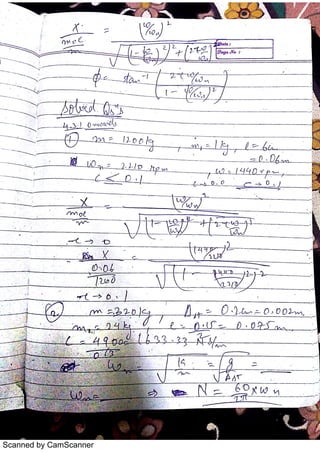 X / (m₀e/m) = (ω/ωn)² / √((1-(ω/ωn)²)² + (2τω/ωn)²)
Date :
Page No :
φ = tan⁻¹ (2τω/ωn / 1-(ω/ωn)²)
Solved Qs's
4.3.1
① m = 1200kg , m₀ = 1kg , e = 6cm
= 0.06m
ωn = 2210 rpm , ω = 1440 rpm,
X / (m₀e/m) = (ω/ωn)² / √((1-(ω/ωn)²)² + (2τω/ωn)²)
τ → 0
X / (0.06/1200) = (1440/2210)² / √((1-(1440/2210)²)²)
τ → 0.1
② m = 320kg, Δst = 0.2cm = 0.002m
m₀ = 24kg e = 0.15/2 = 0.075m
C = 490/0.3 = 1633.33 N/m/s
ωn = √(k/m) = √(g/Δst) =
ωn = ⇒ N = 60×ωn/2π
Scanned by CamScanner